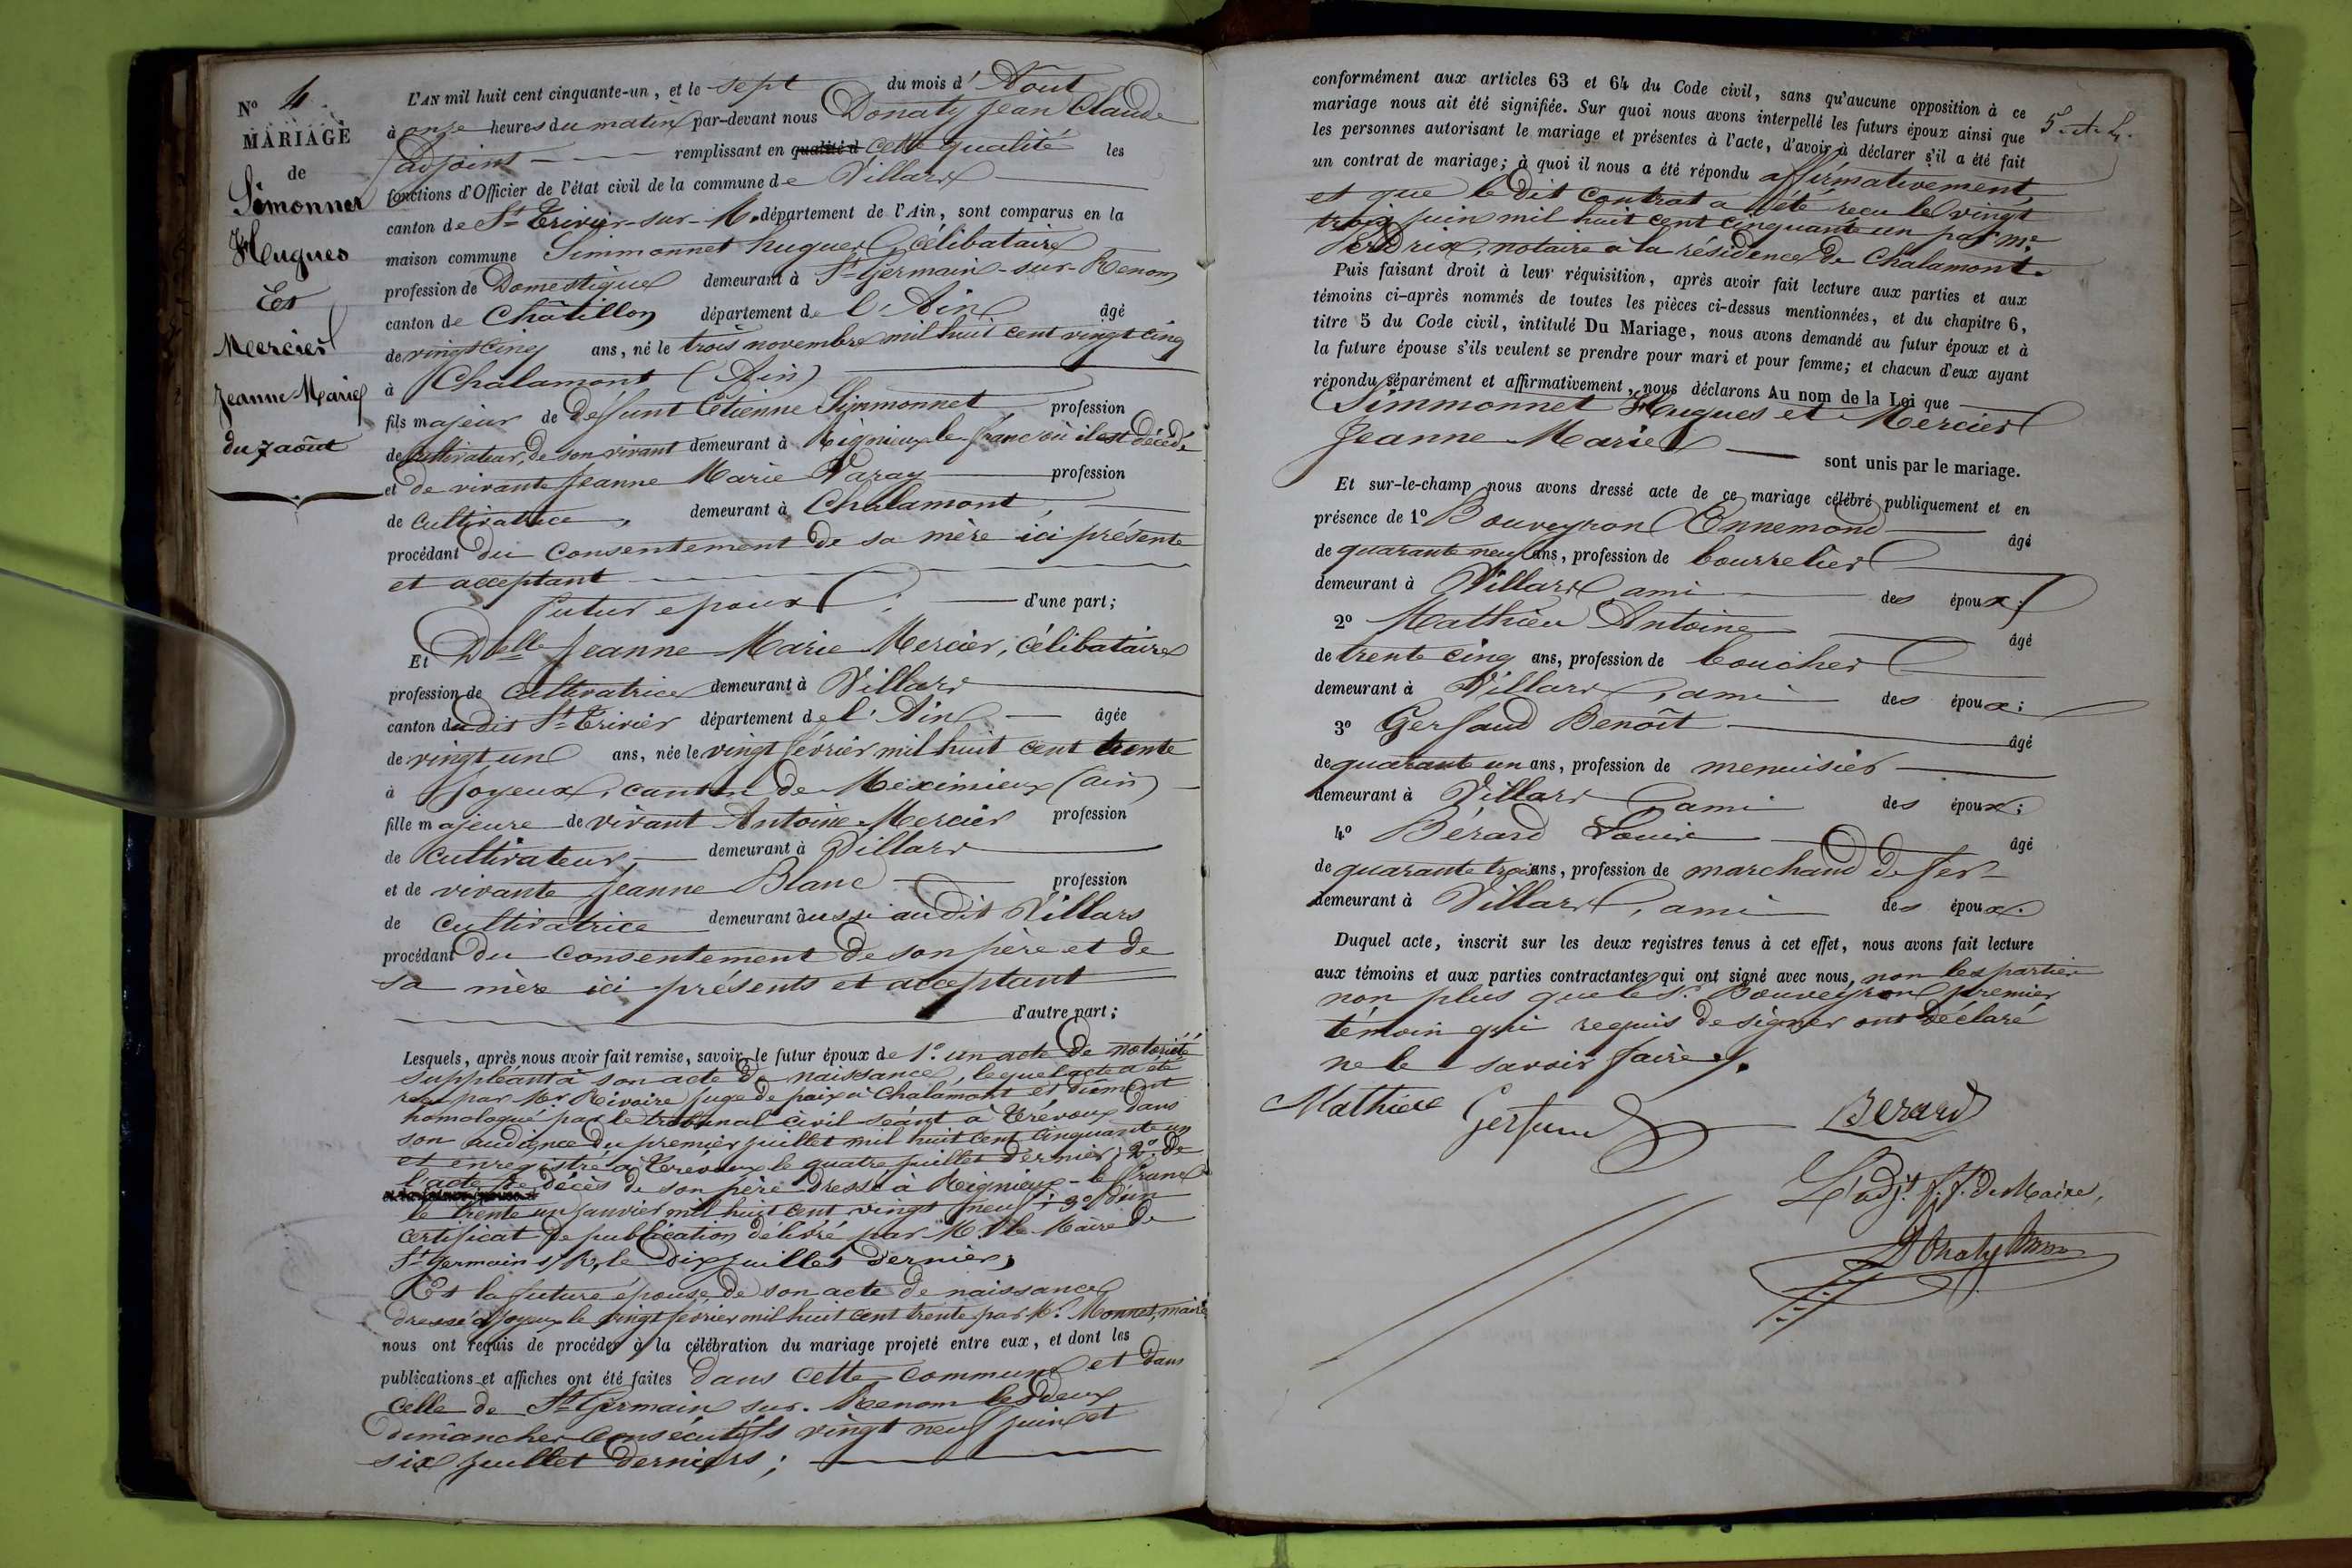 N° 4.
MARIAGE
de
Simonner
Hugues
Et
Mercier
Jeanne Marie
du 7 août
L'AN mil huit cent cinquante-un, et le sept du mois d' Août
à onze heures du matin par-devant nous Donaty Jean Claude
adjoint remplissant en qualité d cette qualité les
fonctions d'Officier de l'état civil de la commune de Villars
canton de St Trivier-sur-M. département de l'Ain, sont comparus en la
maison commune Simmonnet hugues, célibataire
profession de Domestique demeurant à St Germain-sur-Renom
canton de Châtillon département de l'Ain âgé
de vingt cinq ans, né le trois novembre mil huit cent vingt cinq
à Chalamont (Ain)
fils majeur de deffunt Etienne Simmonnet profession
de cultivateur, de son vivant demeurant à Rignieux-le-franc où il est décédé
et de vivante Jeanne Marie Varay profession
de cultivatrice, demeurant à Chalamont,
procédant du consentement de sa mère ici présente
et acceptant
futur epoux; d'une part;
Et Delle Jeanne Marie Mercier, célibataire
profession de cultivatrice demeurant à Villars
canton dudit St Trivier département de l'Ain âgée
de vingt un ans, née le vingt février mil huit cent trente
à Joyeux, canton de Meximieux (ain)
fille majeure de vivant Antoine Mercier profession
de cultivateur, demeurant à Villars
et de vivante Jeanne Blanc profession
de cultivatrice demeurant aussi audit Villars
procédant du consentement de son père et de
sa mère ici présents et acceptant
d'autre part;
Lesquels, après nous avoir fait remise, savoir, le futur époux de 1° un acte de notoriété
suppléant à son acte de naissance, lequel acte a été
reçu par Mr Rivoire juge de paix à Chalamont et dûment
homologué par le tribunal civil séant à Trévoux dans
son audience du premier juillet mil huit cent cinquante un
et enregistré à Trévoux le quatre juillet dernier; 2° de
l'acte de décès de son père dressé à Reignieux-le franc
le trente un janvier mil huit cent vingt neuf; 3° d'un
certificat de publication délivré par M. le Maire de
St germain s/R, le dix juillet dernier,
Et la future épouse de son acte de naissance
dressé à Joyeux le vingt février mil huit cent trente par Mr. Monnet, maire
nous ont requis de procéder à la célébration du mariage projeté entre eux, et dont les
publications et affiches ont été faites dans cette commune et dans
celle de St Germain sur-Renom les deux
dimanches consécutifs vingt neuf juin et
six juillet derniers;
conformément aux articles 63 et 64 du Code civil, sans qu'aucune opposition à ce
mariage nous ait été signifiée. Sur quoi nous avons interpellé les futurs époux ainsi que
les personnes autorisant le mariage et présentes à l'acte, d'avoir à déclarer s'il a été fait
un contrat de mariage; à quoi il nous a été répondu affirmativement,
et que le dit contrat a été reçu le vingt
trois juin mil huit cent cinquante un par Me
Perdrix, notaire à la résidence de Chalamont.
Puis faisant droit à leur réquisition, après avoir fait lecture aux parties et aux
témoins ci-après nommés de toutes les pièces ci-dessus mentionnées, et du chapitre 6,
titre 5 du Code civil, intitulé Du Mariage, nous avons demandé au futur époux et à
la future épouse s'ils veulent se prendre pour mari et pour femme; et chacun d'eux ayant
répondu séparément et affirmativement, nous déclarons Au nom de la Loi que
Simmonnet Hugues et Mercier
Jeanne Marie sont unis par le mariage.
Et sur-le-champ nous avons dressé acte de ce mariage célébré publiquement et en
présence de 1° Bouveyron Ennemond âgé
de quarante neuf ans, profession de bourrelier
demeurant à Villars, ami des époux;
2° Mathieu Antoine âgé
de trente cinq ans, profession de boucher
demeurant à Villars, ami des époux;
3° Gersaud Benoît âgé
de quarante un ans, profession de menuisier
demeurant à Villars, ami des époux;
4° Bérard Louis âgé
de quarante trois ans, profession de marchand de fer
demeurant à Villars, ami des époux.
Duquel acte, inscrit sur les deux registres tenus à cet effet, nous avons fait lecture
aux témoins et aux parties contractantes qui ont signé avec nous, non les parties
non plus que le Sr. Bouveyron premier
témoin qui requis de signer ont déclaré
ne le savoir faire.
Mathieu Gersaud Berard
L'adjt. f.f. de Maire,
Donaty